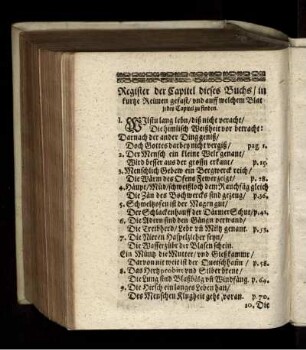 Register der Capitel dieses Buchs/ in
kurtze Reimen gefast/ vnd auff welchem Blat
jedes Capitel zu finden.
1. Wilstu lang lebn/ diß nicht veracht/
Die himlisch Weißheit vor betracht:
Darnach der ander Ding geniß/
Doch Gottes darbey nicht vergiß/ pag 1.
2. Der Mensch ein kleine Welt genant/
Wird besser aus der grossn erkant/ p. 15.
3. Menschlich Gebew ein Bergwerck reich/
Die Wärm des Ofens Fewer zeigt/ p. 28.
4. Häupt/ Mũd/ schweißloch dem Rauchfãg gleich
Die Zän des Bochwercks sind gezeug/ p. 36.
5. Schmelzofen ist der Magen gut/
Der Schlackenhauff der Därmer Schut/ p. 41.
6. Die Adern sind den Gängen verwand/
Die Treibherd/ Lebr vñ Miltz genant. p. 51.
7. Die Nieren Haspelzieher seyn/
Die Wasserzüber die Blasen schein.
Ein Müntz die Mutter/ vnd Gießkammr/
Darvon nit weit ist der Quetschhamr/ p. 58.
8. Das Hertz probirt vnd Silber brent/
Die Lung sind Blasbälg vñ Windfäng. p. 60.
9. Die Hirsch ein langes Leben hatt/
Des Menschen Klugheit geht voran. p. 70.
10. Die